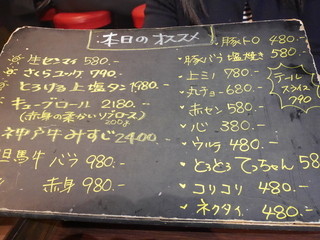 本日のオススメ
生センマイ 580.-
さくらユッケ 790.-
とろける上塩タン 1980.-
キューブロール 2180.-
(赤身の柔かいリブロース)
200g
神戸牛みすじ 2400
但馬牛 バラ 980.-
赤身 980.-
豚トロ 480.-
豚バラ塩焼き 580.-
上ミノ 780.-
丸チョー 680.-
赤セン 580.-
心 380.-
ウルテ 480.-
とろとろてっちゃん 58
コリコリ 480.-
ネクタイ 480.-
テール
スライス
790